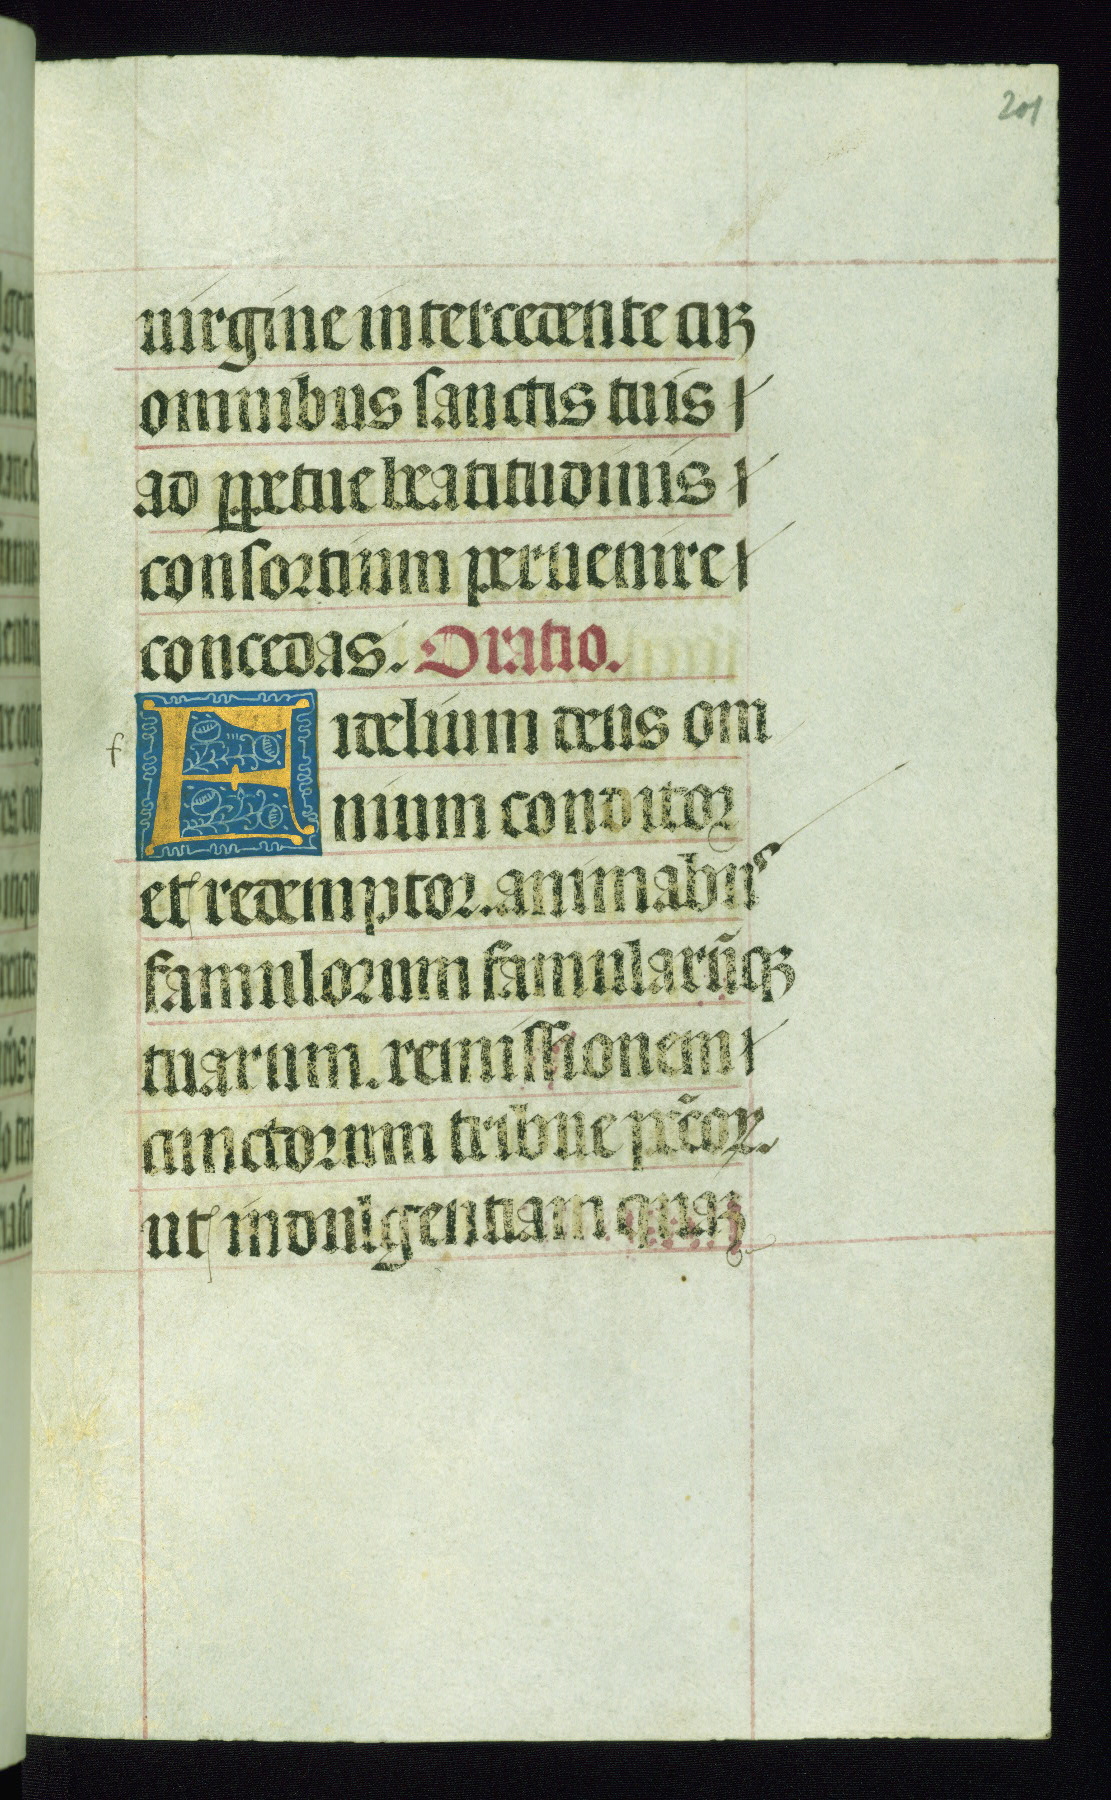 201
uirgine intercedente cūꝫ
omnibus sanctis tuis
ad perpetue beatitudinis
consortium peruenire
concedas. Oratio.
f
Fidelium deus om
nium conditor
et redemptor. animabus
famulorum famularūqꝫ
tuarum. remissionem
cunctorum tribue p̄ctōꝝ.
ut indulgentiam quaꝫ